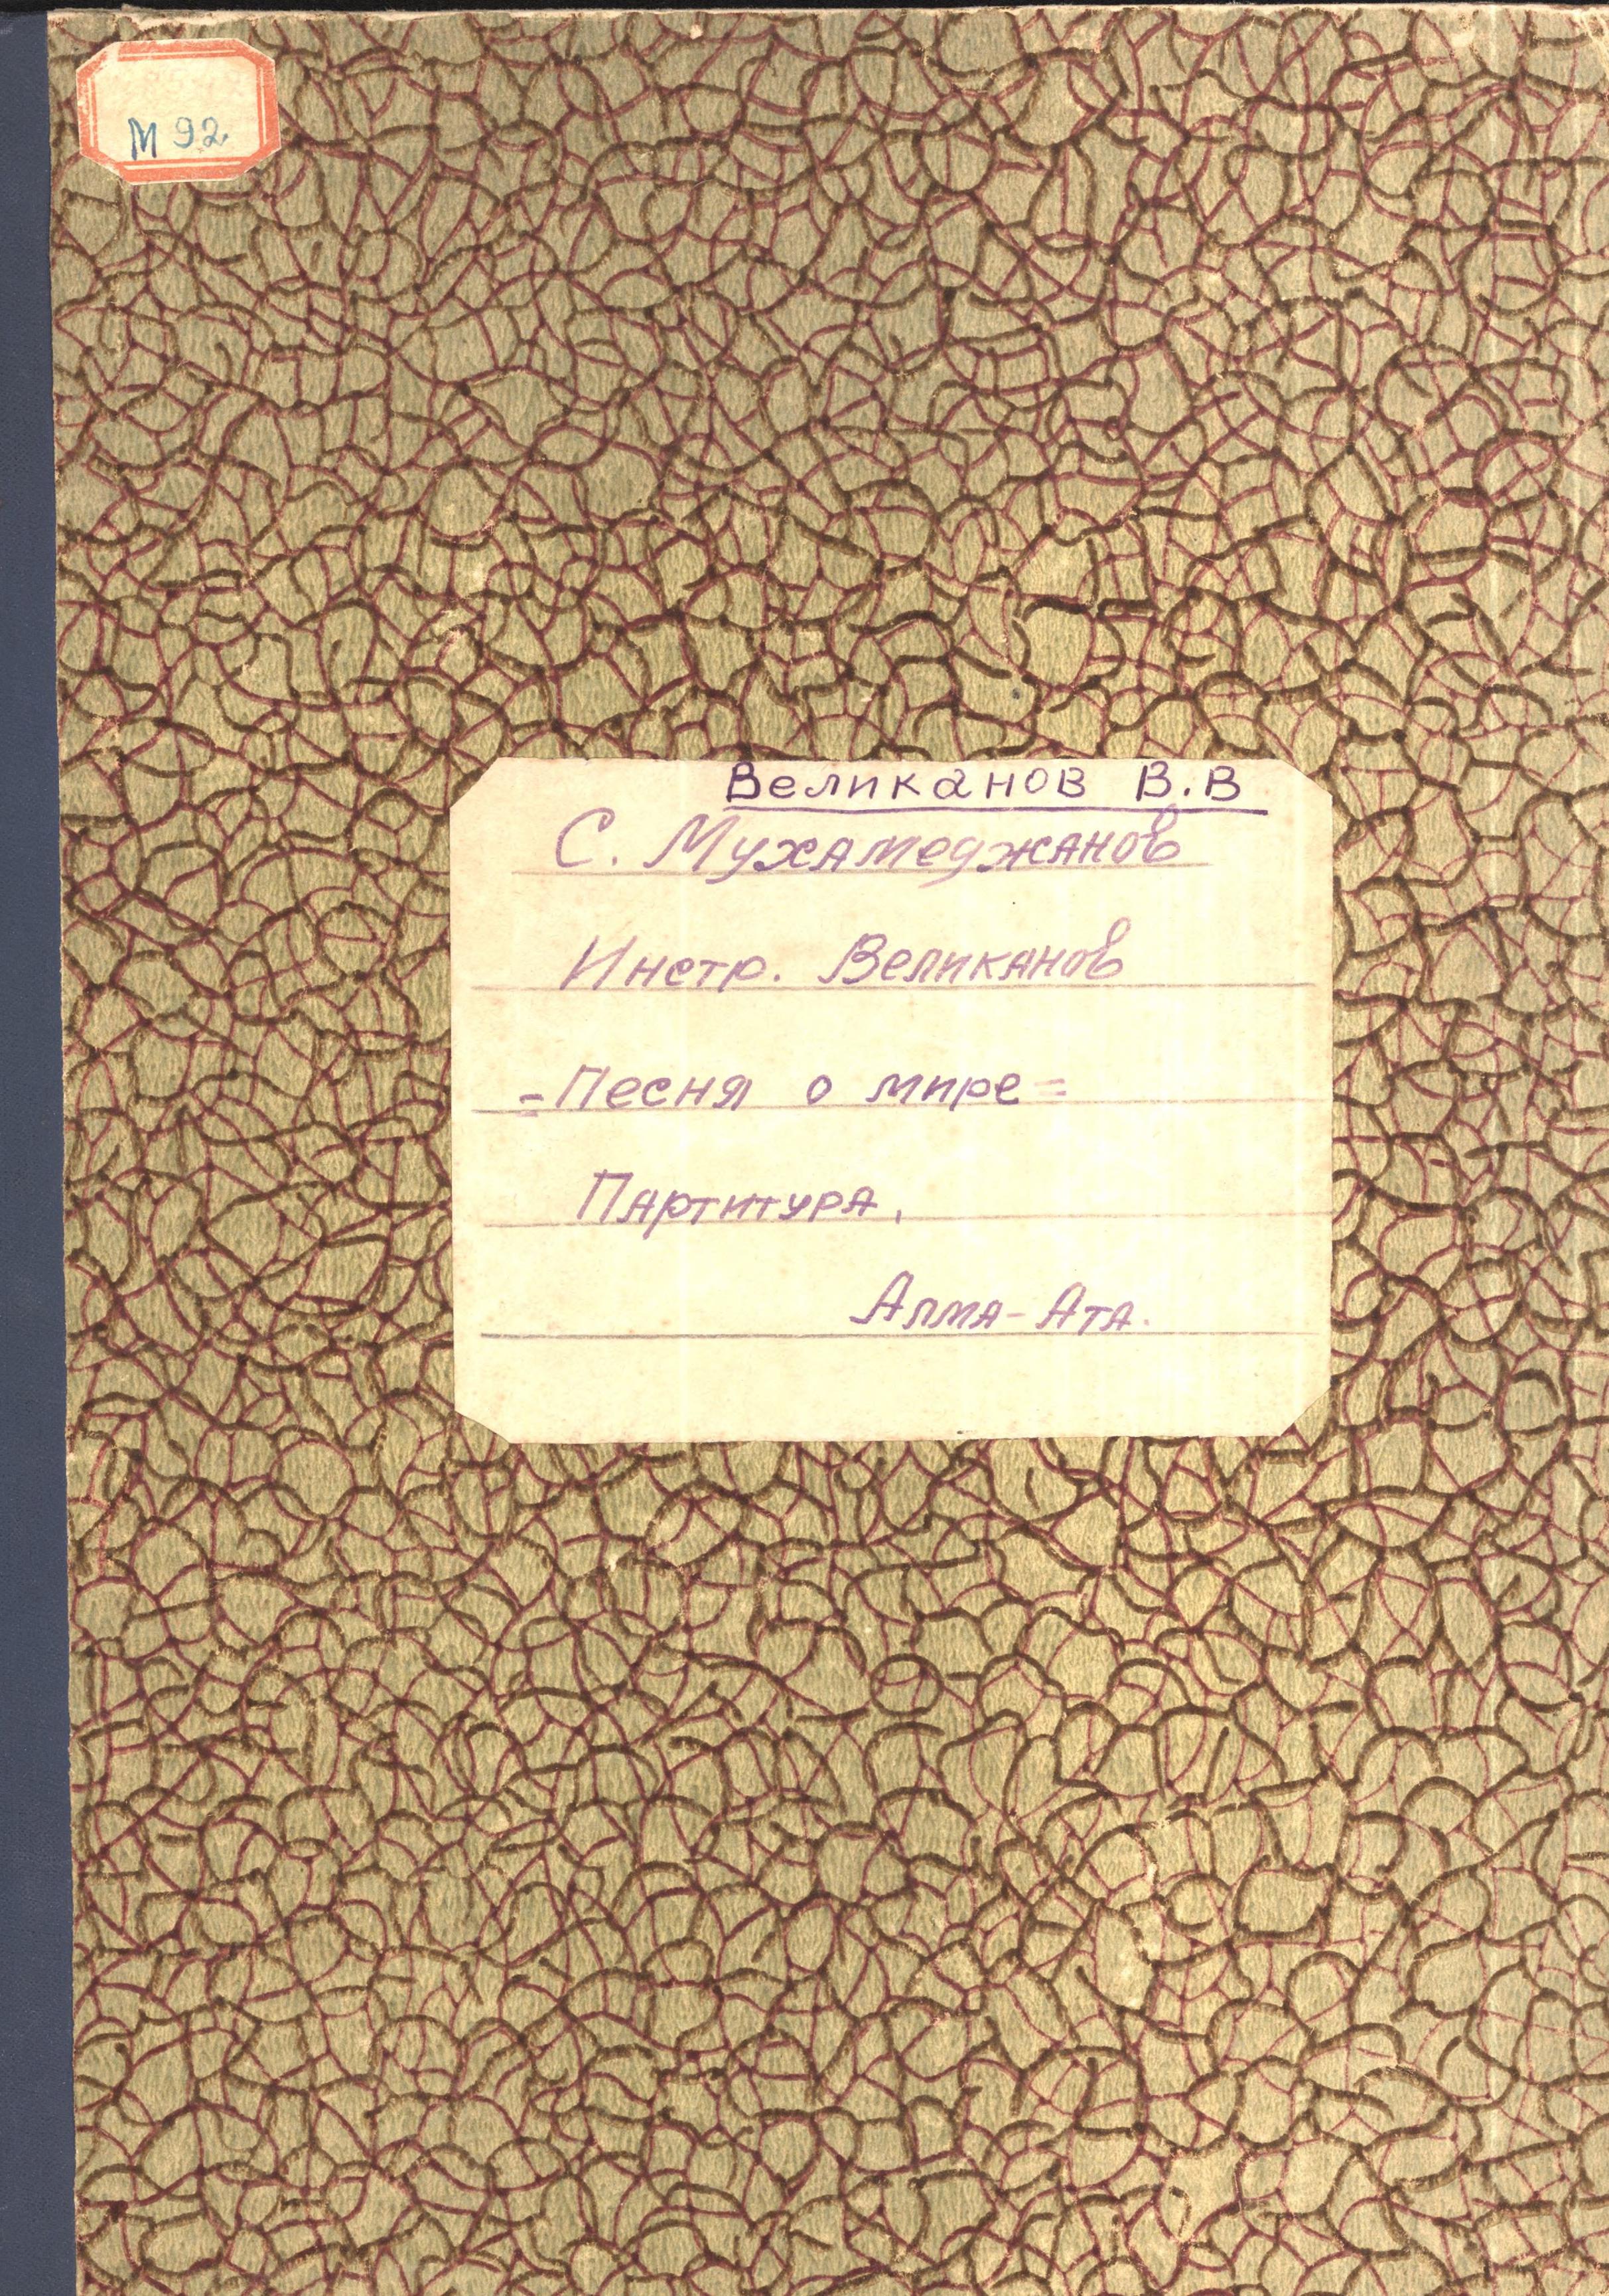 М 92
Великанов В.В
С. Мухамеджанов
Инстр. Великанов
= Песня о мире =
Партитура.
Алма-Ата.